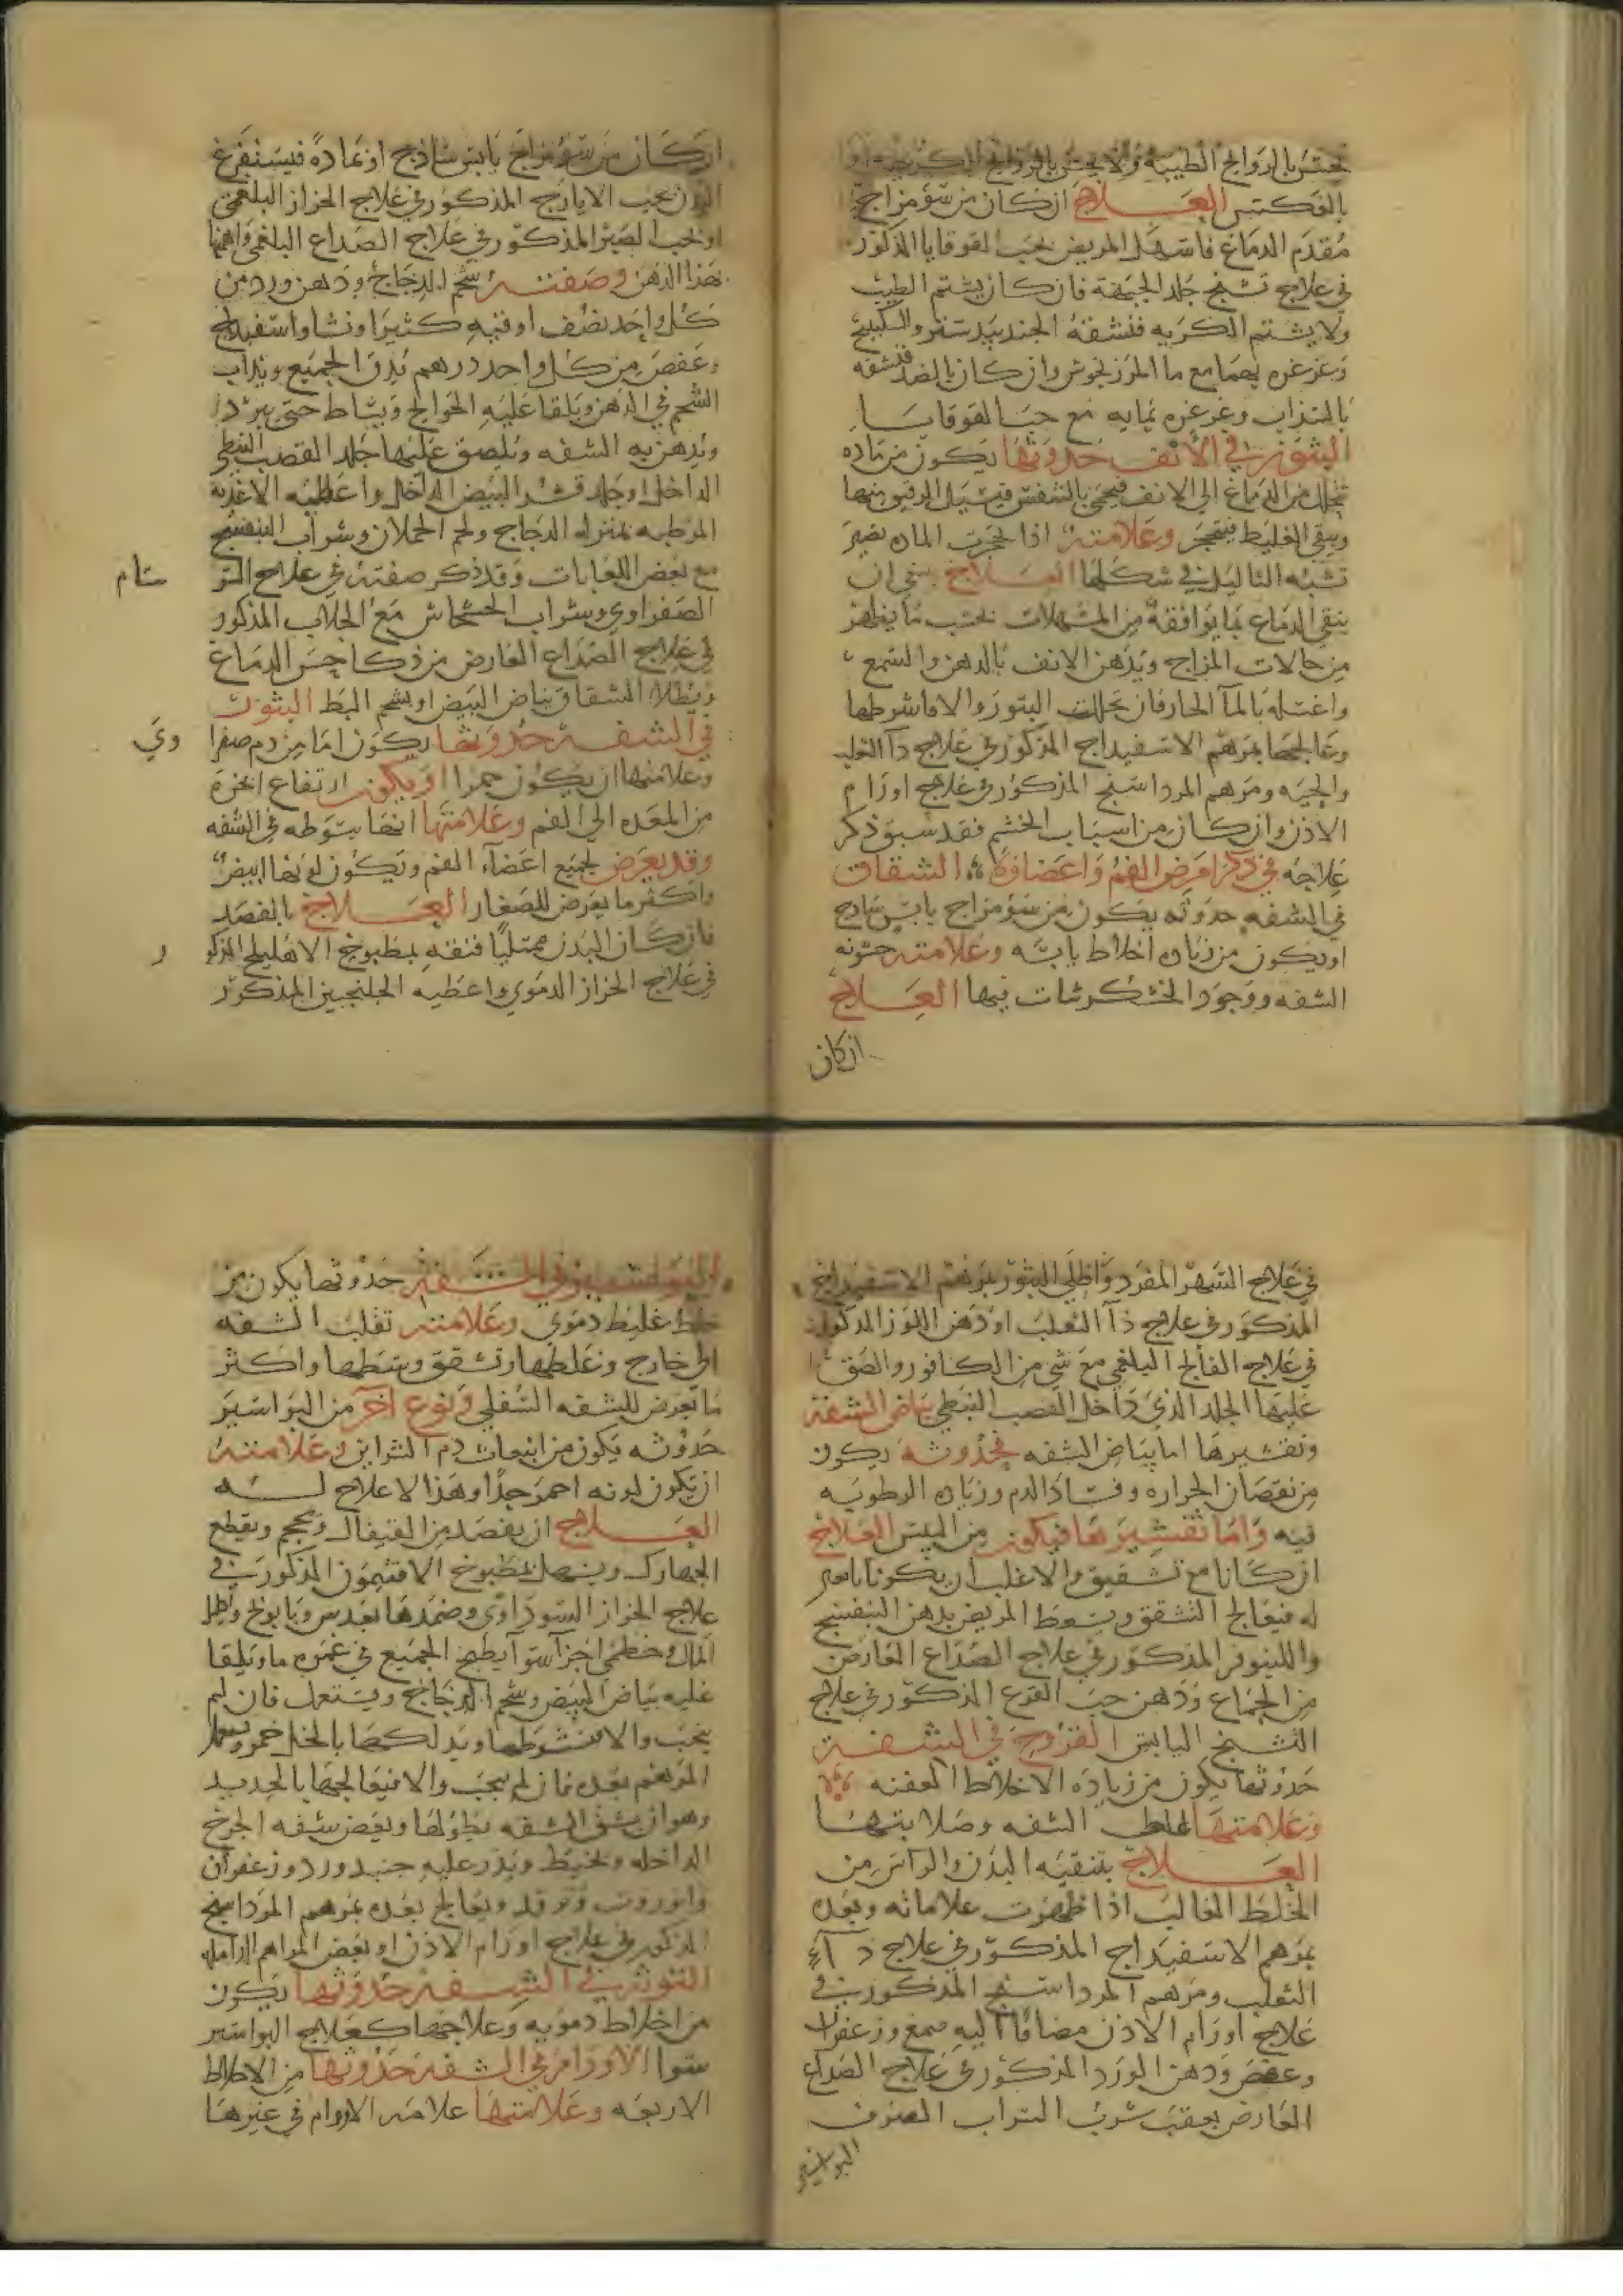 يحتس بالروايح الطيبة ولا يحس بالروايح الكريهة او
بالعكس العلاج ان كان من سؤ مزاج في
مقدم الدماغ فاسهل المريض بحب القوقايا المذكور
في علاج تشنج جلد الجبهة فان كان يشتم الطيب
ولا يشتم الكريه فنشقه الجندبيدستر والسكبينج
وغرغره بهما مع ما المرزنجوش وان كان بالضد فنشقه
بالسذاب وغرغره بمايه مع حب القوقايا
البثور في الأنف حدوثها يكون من ماده
تتحلل من الدماغ الي الانف فيحمى بالشمس فيسيل الرقيق منها
ويبقى الغليظ فيتحجر وعلامته اذا تحجرت الماده تصير
تشبه الثاليل في شكلها العلاج ينبغي ان
ينقي الدماغ بما يوافقه من المسهلات بحسب ما يظهر
من حالات المزاج ويدهن الانف بالدهن والشمع
واغسله بالمآ الحار فان تحللت البثور والا فاشرطها
وعالجها بمرهم الاسفيداج المذكور في علاج دآ الثعلب
والحيه ومرهم المرداسنج المذكور في علاج اورام
الاذن وان كان من اسباب الخشم فقد سبق ذكر
علاجه في ذكر امرض الفم واعضاوه الشقاق
في الشفه حدوثه يكون من سؤ مزاج يابس سادج
او يكون من زياده اخلاط يابسه وعلامته خشونه
الشفه ووجود الخشكرشات فيها العلاج
ان كان
ان كان من سؤ مزاج يابس ساذج او بماده فيستفرغ
البدن بحب الايارج المذكور في علاج الحزاز البلغمي
او بحب الصبر المذكور في علاج الصداع البلغمي وادهنها
بهذا الدهن وصفته شحم الدجاج ودهن ورد من
كل واحد نصف اوقيه كثيرا ونشا واسفيداج
وعفص من كل واحد درهم يدق الجميع ويذاب
الشحم في الدهن ويلقا عليه الحوايج ويشاط حتى يبرد
ويدهن به الشفه ويلصق عليها جلد القصب النبطي
الداخل او جلد قشر البيض الداخل واعطيه الاغذيه
المرطبه بمنزله الدجاج ولحم الحملان وشراب البنفسج
مع بعض اللعابات وقد ذكر صفته في علاج السر سام
الصفراوي وشراب الخشخاش مع الجلاب المذكور
في علاج الصداع العارض من ذكا حس الدماغ
ويطلا الشقاق بياض البيض او بشحم البط البثور
في الشفه حدوثها يكون اما من دم صفرا وي
وعلامتها ان يكون حمرا او يكون ارتفاع ابخرة
من المعده الي الفم وعلامتها انها متوطه في الشفه
وقد يعرض لجميع اعضآء الفم ويكون لونها ابيض
واكثر ما يعرض للصغار العلاج بالفصد
فان كان البدن ممتليا فنقه بمطبوخ الاهليلج المذكو ر
في علاج الحزاز الدموي واعطيه الجلنجبين المذكور
في علاج السهر المفرد واطلي البثور بمرهم الاسفيداج
المذكور في علاج دآ الثعلب او دهن اللوز المذكور
في علاج الفالج البلغمي مع شي من الكافور والصق
عليها الجلد الذي داخل القصب النبطي بياض الشفة
وتقشيرها اما بياض الشفه فحدوثه يكون
من نقصان الحراره وفساد الدم وزياده الرطوبه
فيه واما تقشيرها فيكون من اليبس العلاج
ان كانا مع تشقيق والاغلب ان يكونا
له فيعالج التشقق ويسعط المريض بدهن البنفسج
واللينوفر المذكور في علاج الصداع العارض
من الجماع ودهن حب القرع المذكور في علاج
التشنج اليابس القروح في الشفة
حدوثها يكون من زيادة الاخلاط العفنه
وعلامتها غلط الشفه وصلابتها
العلاج بتنقيه البدن والراس من
الخلط الغالب اذا ظهرت علاماته وبعده
بمرهم الاسفيداج المذكور في علاج دآء
الثعلب ومرهم المرداسنج المذكور في
علاج اورام الاذن مضافا اليه صمغ وزعفران
وعفص ودهن الورد المذكور في علاج الصداع
العارض بعقب شرب الشراب الصرف
البواسير
البواسير في الشفة حدوثها يكون من
خلط غليظ دموي وعلامته تقلب الشفه
الي خارج وغلطها وتشقق وسطها واكثر
ما تعرض للشفه السفلي ونوع اخر من البواسير
حدوثه يكون من انبعاث دم الشراين وعلامته
ان يكون لونه احمر جدا وهذا لا علاج له
العلاج ان يفصد من القيفال ويحجم ويقطع
الجهارك ويسهل بمطبوخ الافتيمون المذكور في
علاج الحزاز السوداوي وضمدها بعدس وبابونج واكليل
الملك وخطمي اجزآ سوآ يطبخ الجميع في غمره ما ويلقا
عليه بياض البيض وشحم الدجاج ويستعمل فان لم
يجب والا فتشرطها ويدلكها بالخل خمر ويعمل
المرهم بعده فان لم يجب والا فيعالجها بالحديد
وهو ان يشق الشفه بطولها ويقص شفه الجرح
الداخله وتخيط ويذر عليه جنبد ورد وزعفران
وانزروت ويرقد ويعالج بعده بمرهم المرداسنج
المذكور في علاج اورام الاذن او بعض المراهم الدامله
التوث في الشفه حدوثها يكون
من اخلاط دمويه وعلاجها كعلاج البواسير
سوا الاورام في الشفه حدوثها من الاخلاط
الاربعه وعلامتها علامه الاورام في غيرها